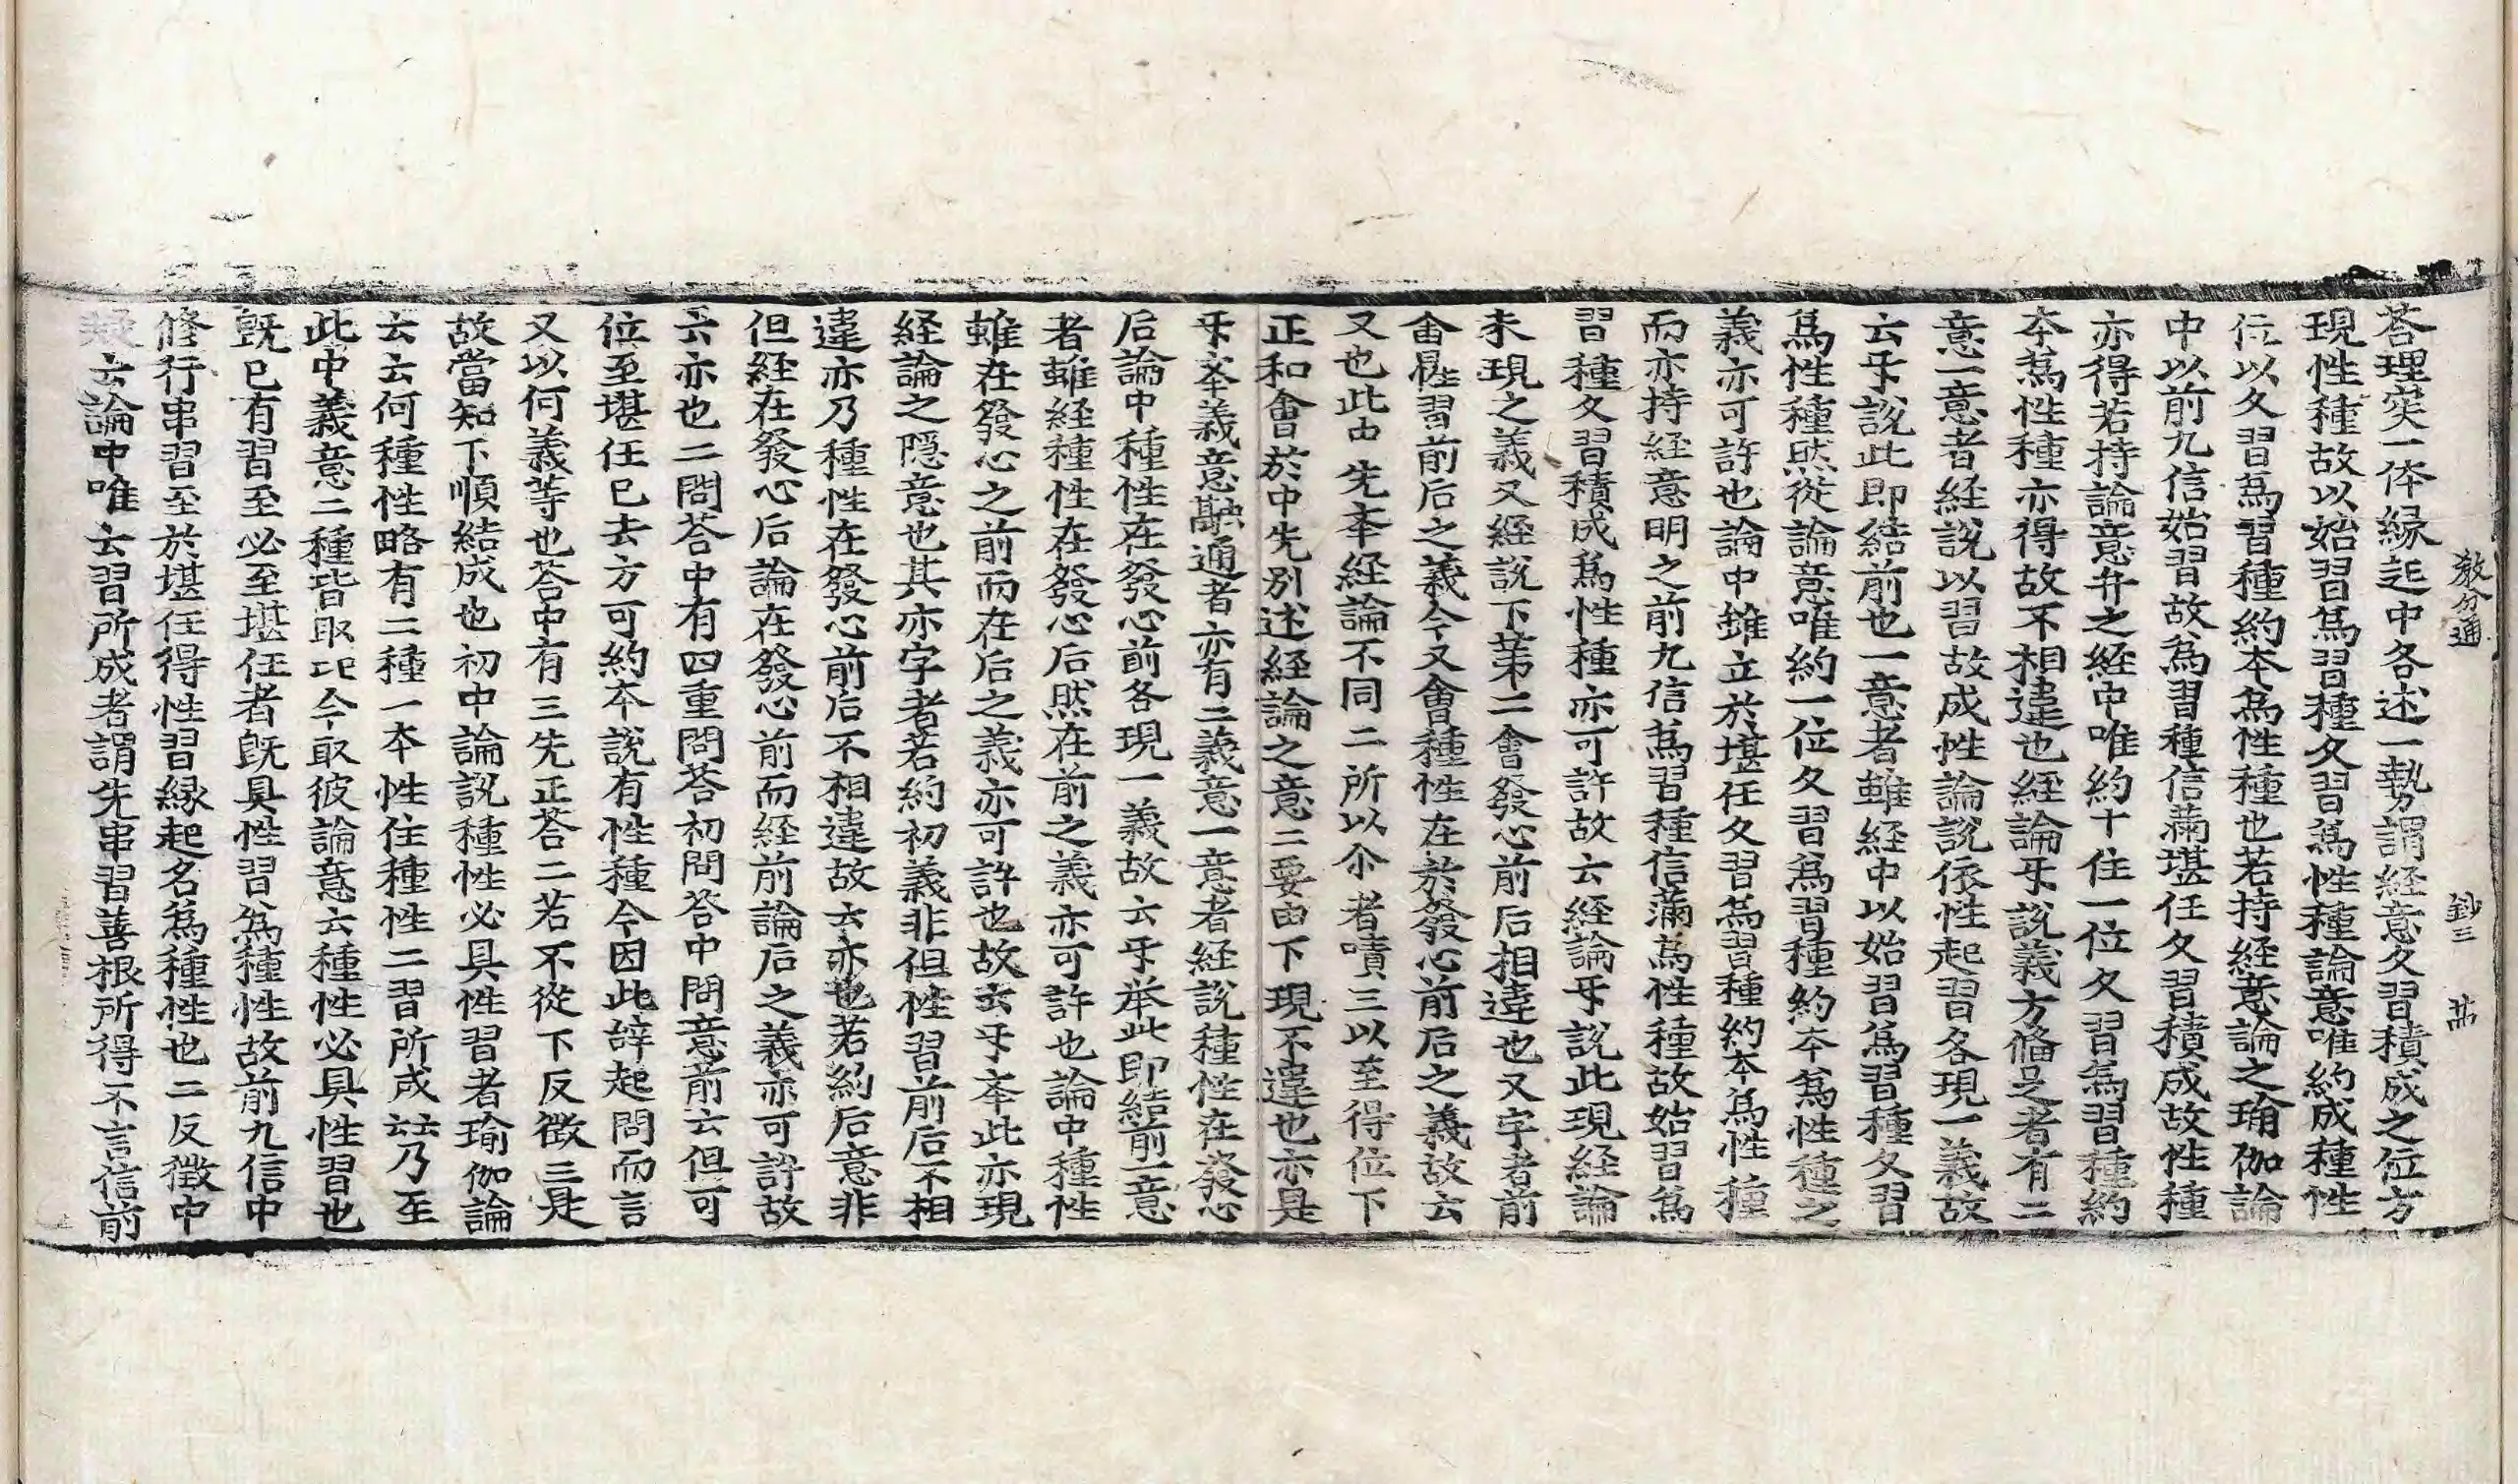 教分通 鈔三 卅
荅理实一体縁起中各述一勢謂経意久習積成之位方
現性種故以始習爲習種久習爲性種論意唯約成種性
位以久習爲習種約本爲性種也若持経意論之瑜伽論
中以前九信始習故爲習種信滿堪任久習積成故性種
亦得若持論意弁之経中唯約十住一位久習爲習種約
本爲性種亦得故不相違也経論互說義方俻足者有二
意一意者経說以習故成性論說依性起習各現一義故
云互說此即結前也一意者雖経中以始習爲習種久習
爲性種然從論意唯約一位久習爲習種約本爲性種之
義亦可許也論中雖立於堪任久習爲習種約本爲性種
而亦持経意明之前九信爲習種信滿爲性種故始習爲
習種久習積成爲性種亦可許故云経論互說此現経論
未現之義又経說下第二會發心前后相違也又字者前
會性習前后之義今又會種性在於發心前后之義故云
又也此由先牽経論不同二所以尒者嘖三以至得位下
正和會於中先別述経論之意二要由下現不違也亦是
互牽義意融通者亦有二義意一意者経說種性在發心
后論中種性在發心前各現一義故云互举此即結前一意
者雖経種性在發心后然在前之義亦可許也論中種性
雖在發心之前而在后之義亦可許也故云互牽此亦現
経論之隠意也其亦字者若約初義非但性習前后不相
違亦乃種性在發心前后不相違故云亦也若約后意非
但経在發心后論在發心前而経前論后之義亦可許故
云亦也二問荅中有四重問荅初問荅中問意前云但可
位至堪任已去方可約本說有性種今因此辞起問而言
又以何義等也荅中有三先正荅二若不從下反徵三是
故當知下順結成也初中論說種性必具性習者瑜伽論
云云何種性略有二種一本性住種性二習所成云云乃至
此中義意二種皆取此今取彼論意云種性必具性習也
旣已有習至必至堪任者旣具性習爲種性故前九信中
修行串習至於堪任得性習縁起名爲種性也二反徵中
疑云論中唯云習所成者謂先串習善根所得不言信前